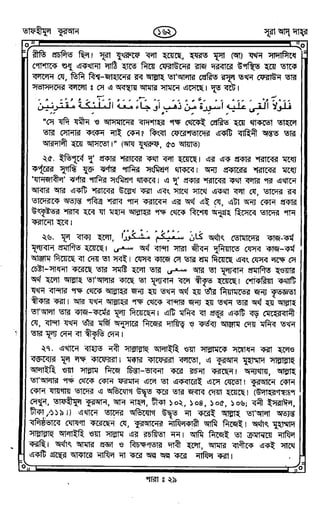 তাফহীমুল কুরআন
১৬২
সূরা আদ্ দাহর
রীতি প্রচলিত ছিল। সূরা যুখরুফে বলা হয়েছে, হযরত মূসা (আ) যখন সাদাসিধে
পোশাকে শুধু একখানা লাঠি হাতে নিয়ে ফেরাউনের রাজ দরবারে উপস্থিত হয়ে তাকে
বললেন যে, তিনি বিশ্ব-জাহানের রব আল্লাহ তা'আলার প্রেরিত রসূল তখন ফেরাউন তার
সভাসদদের বললোঃ সে এ অবস্থায় আমার সামনে এসেছে। দূত বটে।
فَلَوْلَا أُلْقِيَ عَلَيْهِ أَسْوِرَةٌ مِّنْ ذَهَبٍ أَوْ جَاءَ مَعَهُ الْمَلٰئِكَةُ مُقْتَرِنِيْنَ
"সে যদি যমীন ও আসমানের বাদশাহর পক্ষ থেকেই প্রেরিত হয়ে থাকতো তাহলে
তার সোনার কংকন নাই কেন? কিংবা ফেরেশতাদের একটি বাহিনী অন্তত তার
আরদালী হয়ে আসতো।" (আয যুখরুফ, ৫৩ আয়াত)
২৫. ইতিপূর্বে দু' প্রকার শরাবের কথা বলা হয়েছে। এর এক প্রকার শরাবের মধ্যে
কর্পূরের সুগন্ধি যুক্ত ঝর্ণার পানির সংমিশ্রণ থাকবে। অন্য প্রকারের শরাবের মধ্যে
'যানজাবীল' ঝর্ণার পানির সংমিশ্রণ থাকবে। এ দু' প্রকার শরাবের কথা বলার পর এখানে
আবার আর একটি শরাবের উল্লেখ করা এবং সাথে সাথে একথা বলা যে, তাদের রব
তাদেরকে অত্যন্ত পবিত্র শরাব পান করাবেন এর অর্থ এই যে, এটা অন্য কোন প্রকার
উৎকৃষ্টতর শরাব হবে যা মহান আল্লাহর পক্ষ থেকে বিশেষ অনুগ্রহ হিসেবে তাদের পান
করানো হবে।
২৬. মূল বাক্য হলো, كَانَ سَعْيُكُمْ مَشْكُوْرًا অর্থাৎ তোমাদের কাজ-কর্ম
মূল্যবান প্রমাণিত হয়েছে। سعى অর্থ বান্দা সারা জীবন দুনিয়াতে যেসব কাজ-কর্ম
আঞ্জাম দিয়েছে বা দেয় তা সবই। যেসব কাজে সে তার শ্রম দিয়েছে এবং যেসব লক্ষ্যে সে
চেষ্টা-সাধনা করেছে তার সমষ্টি হলো তার سعى আর তা মূল্যবান প্রমাণিত হওয়ার
অর্থ হলো আল্লাহ তা'আলার কাছে তা মূল্যবান বলে স্বীকৃত হয়েছে। শোকরিয়া কথাটি
যখন বান্দার পক্ষ থেকে আল্লাহর জন্য হয় তখন অর্থ হয় তাঁর নিয়ামতের জন্য কৃতজ্ঞতা
স্বীকার করা। আর যখন আল্লাহর পক্ষ থেকে বান্দার জন্য হয় তখন তার অর্থ হয় আল্লাহ
তা'আলা তার কাজ-কর্মের মূল্য দিয়েছেন। এটি মনিব বা প্রভুর একটি বড় মেহেরবানী
যে, বান্দা যখন তাঁর মর্জি অনুসারে নিজের দায়িত্ব ও কর্তব্য আঞ্জাম দেয় মনিব তখন
তার মূল্য দেন বা স্বীকৃতি দেন।
২৭. এখানে বাহ্যত নবী সাল্লাল্লাহু আলাইহি ওয়া সাল্লামকে সম্বোধন করা হলেও
বক্তব্যের মূল লক্ষ্য কাফেররা। মক্কার কাফেররা বলতো, এ কুরআন মুহাম্মাদ সাল্লাল্লাহু
আলাইহি ওয়া সাল্লাম নিজে চিন্তা-ভাবনা করে রচনা করেছেন। অন্যথায়, আল্লাহ
তা'আলার পক্ষ থেকে কোন ফরমান এলে তা একবারেই এসে যেতো। কুরআনে কোন
কোন যায়গায় তাদের এ অভিযোগ উদ্ধৃত করে তার জবাব দেয়া হয়েছে। (উদাহরণস্বরূপ
দেখুন, তাফহীমুল কুরআন, আন নাহল, টীকা ১০২, ১০৪, ১০৫, ১০৬; বনী ইসরাঈল,
টীকা ১১৯।) এখানে তাদের অভিযোগ উদ্ধৃত না করেই আল্লাহ তা'আলা অত্যন্ত
বলিষ্ঠভাবে ঘোষণা করেছেন যে, কুরআনের নাযিলকারী আমি নিজেই। অর্থাৎ মুহাম্মাদ
সাল্লাল্লাহু আলাইহি ওয়া সাল্লাম এর রচয়িতা নন। আমি নিজেই তা ক্রমান্বয়ে নাযিল
করছি। অর্থাৎ আমার প্রজ্ঞা ও বিচক্ষণতার দাবী হলো, আমার বাণীকে একই সাথে
একটি গ্রন্থের আকারে নাযিল না করে অল্প অল্প করে নাযিল করা।
পারা : ২৯